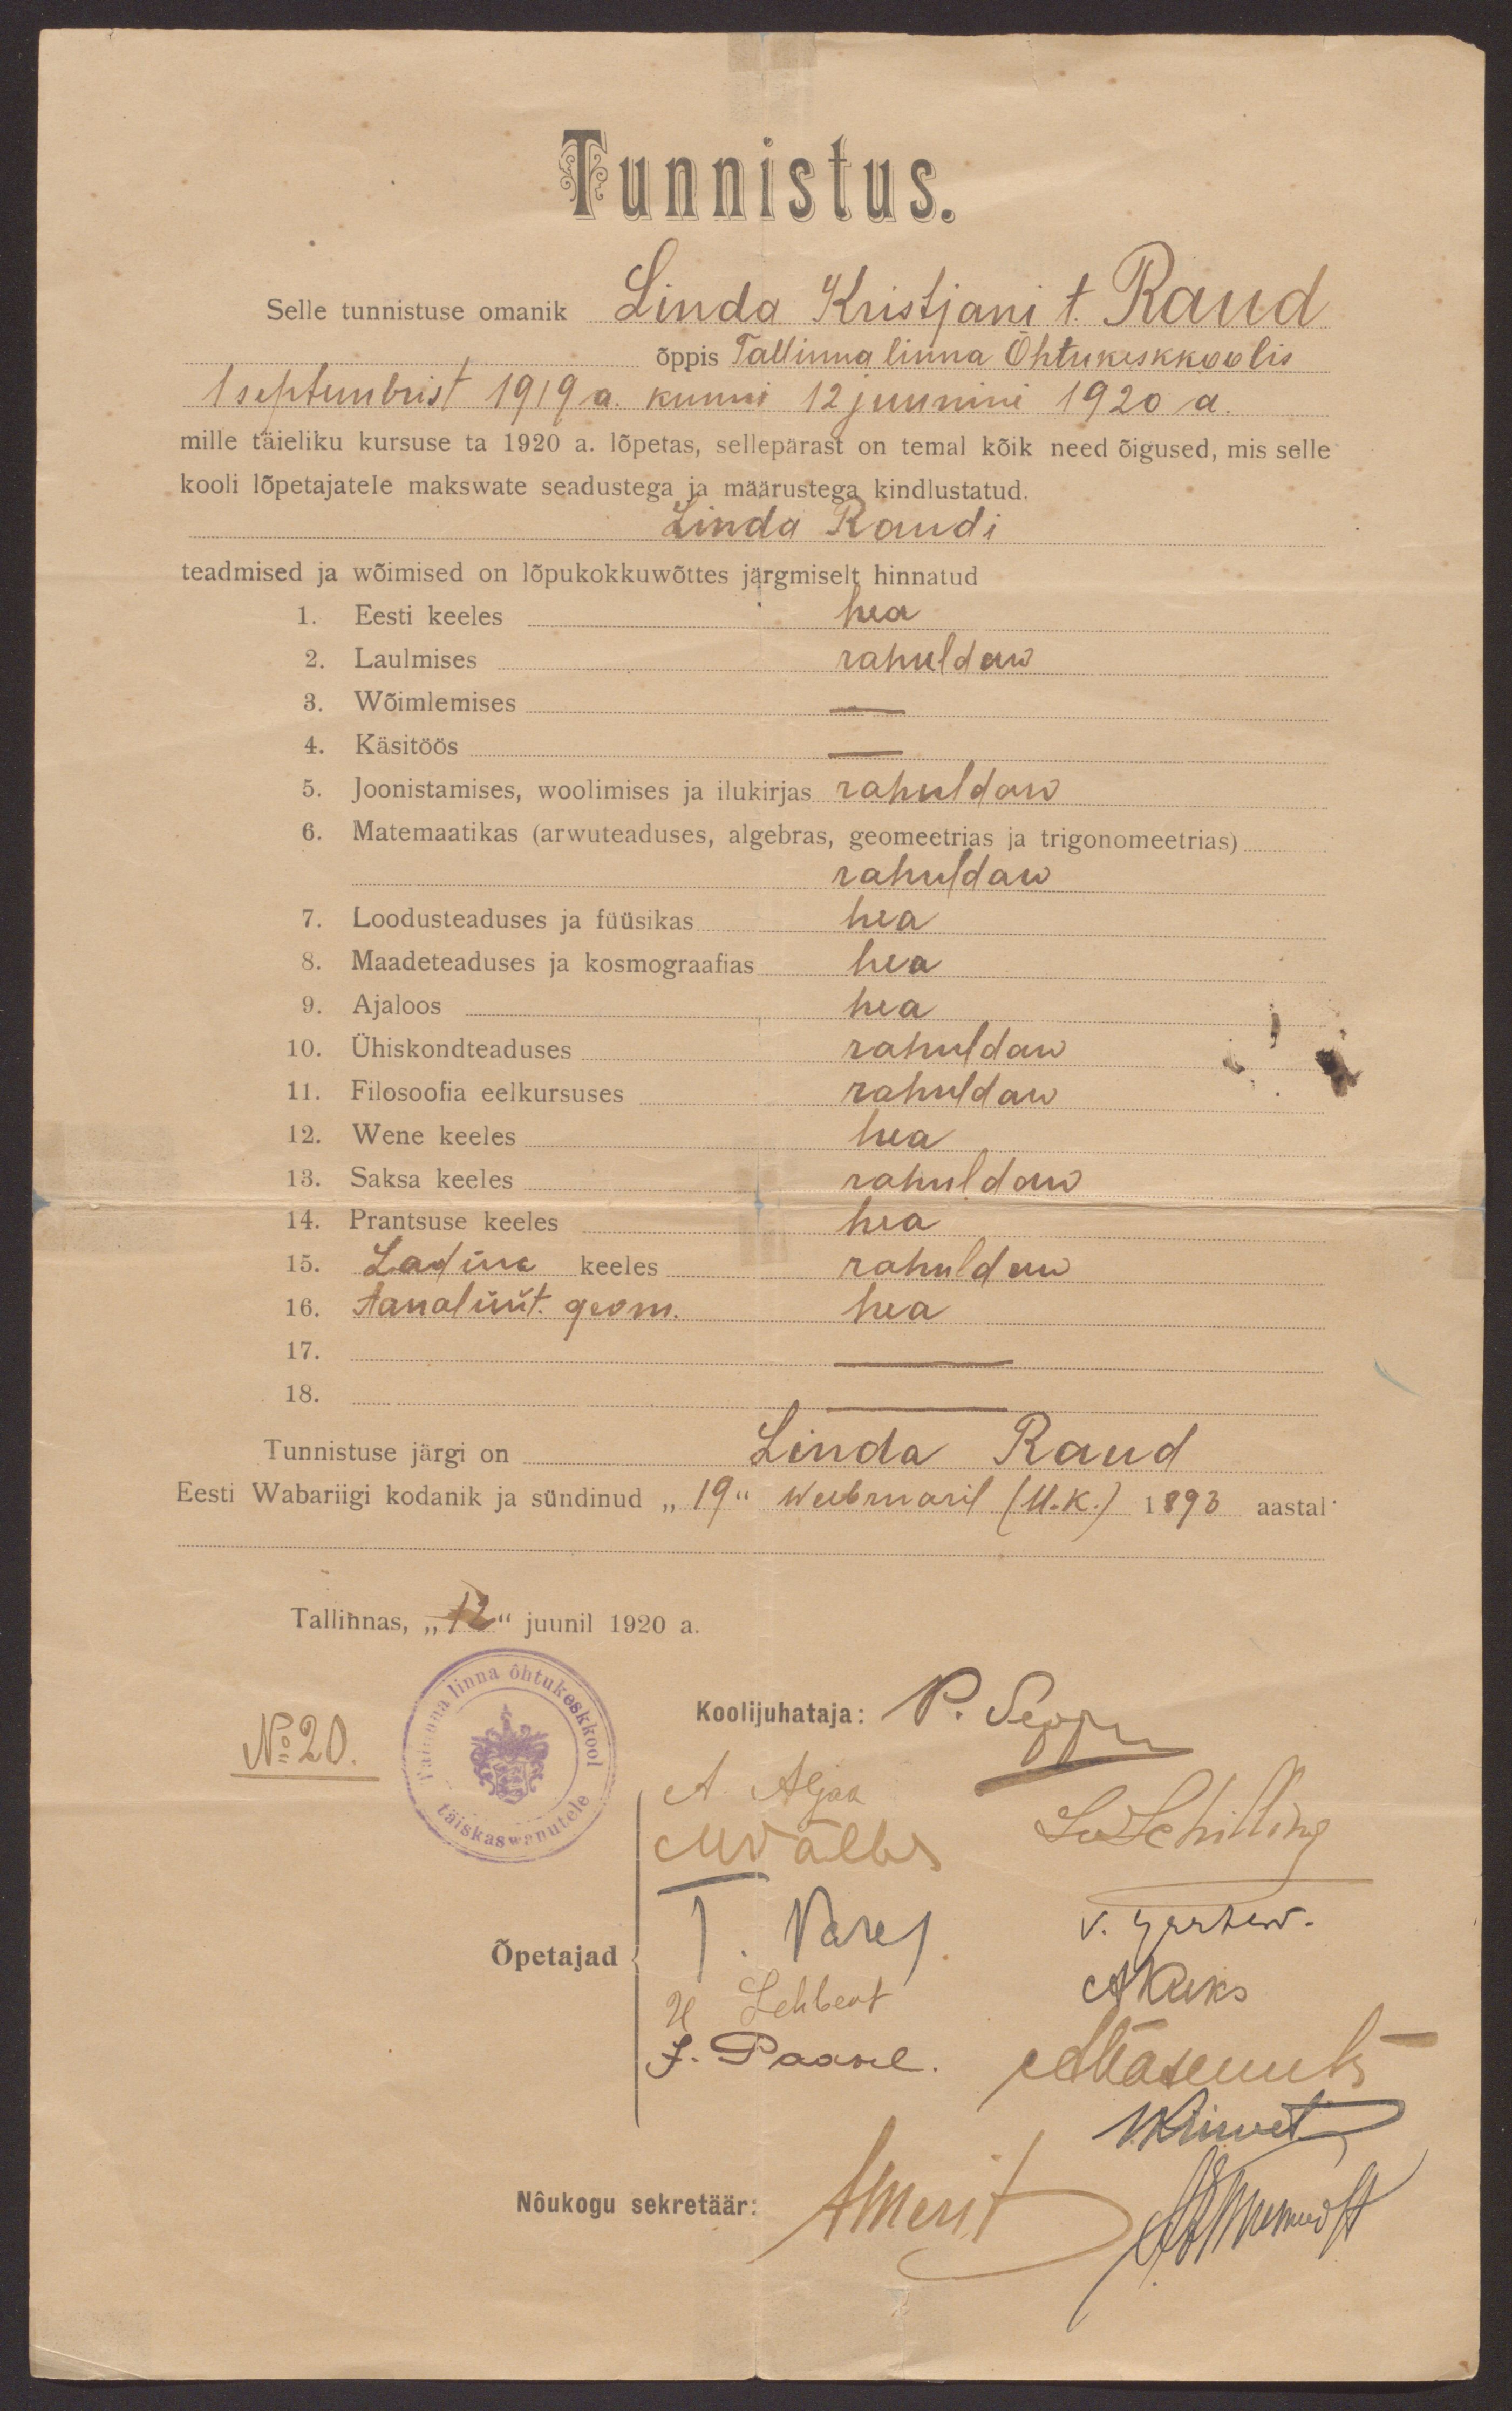 Tunnistus.
Selle tunnistuse omanik Linda Kristjani t. Raud
õppis Tallinna linna Õhtukeskkoolis
1 septembrist 1919 a. kunni 12 juunini 1920 a.
mille täieliku kursuse ta 1920 a. lõpetas, sellepärast on temal kõik need õigused, mis selle
kooli lõpetajatele makswate seadustega ja määrustega kindlustatud.
Linda Raudi
teadmised ja wõimised on lõpukokkuwõttes järgmiselt hinnatud
1. Eesti keeles hea
2. Laulmises rahuldaw
3. Wõimlemises —
4. Käsitöös —
5. Joonistamises, woolimises ja ilukirjas rahuldaw
6. Matemaatikas (arwuteaduses, algebras, geomeetrias ja trigonomeetrias)
rahuldaw
7. Loodusteaduses ja füüsikas hea
8. Maadeteaduses ja kosmograafias hea
9. Ajaloos hea
10. Ühiskondteaduses rahuldaw
11. Filosoofia eelkursuses rahuldaw
12. Wene keeles hea
13. Saksa keeles rahuldaw
14. Prantsuse keeles hea
15. Ladina keeles rahuldaw
16. Aanalüüt. geom. hea
17. —
18. —
Tunnistuse järgi on Linda Raud
Eesti Wabariigi kodanik ja sündinud „19“ weebruaril (U.K.) 1893 aastal
Tallinnas, „12“ juunil 1920 a.
Tallinna linna õhtukeskkool
täiskaswanutele
№ 20.
Koolijuhataja: P. Seppu
A. Aljaa
L. Schilling
J. Vares
Õpetajad
A Kuks
J. Paawel.
Nõukogu sekretäär: A Merit